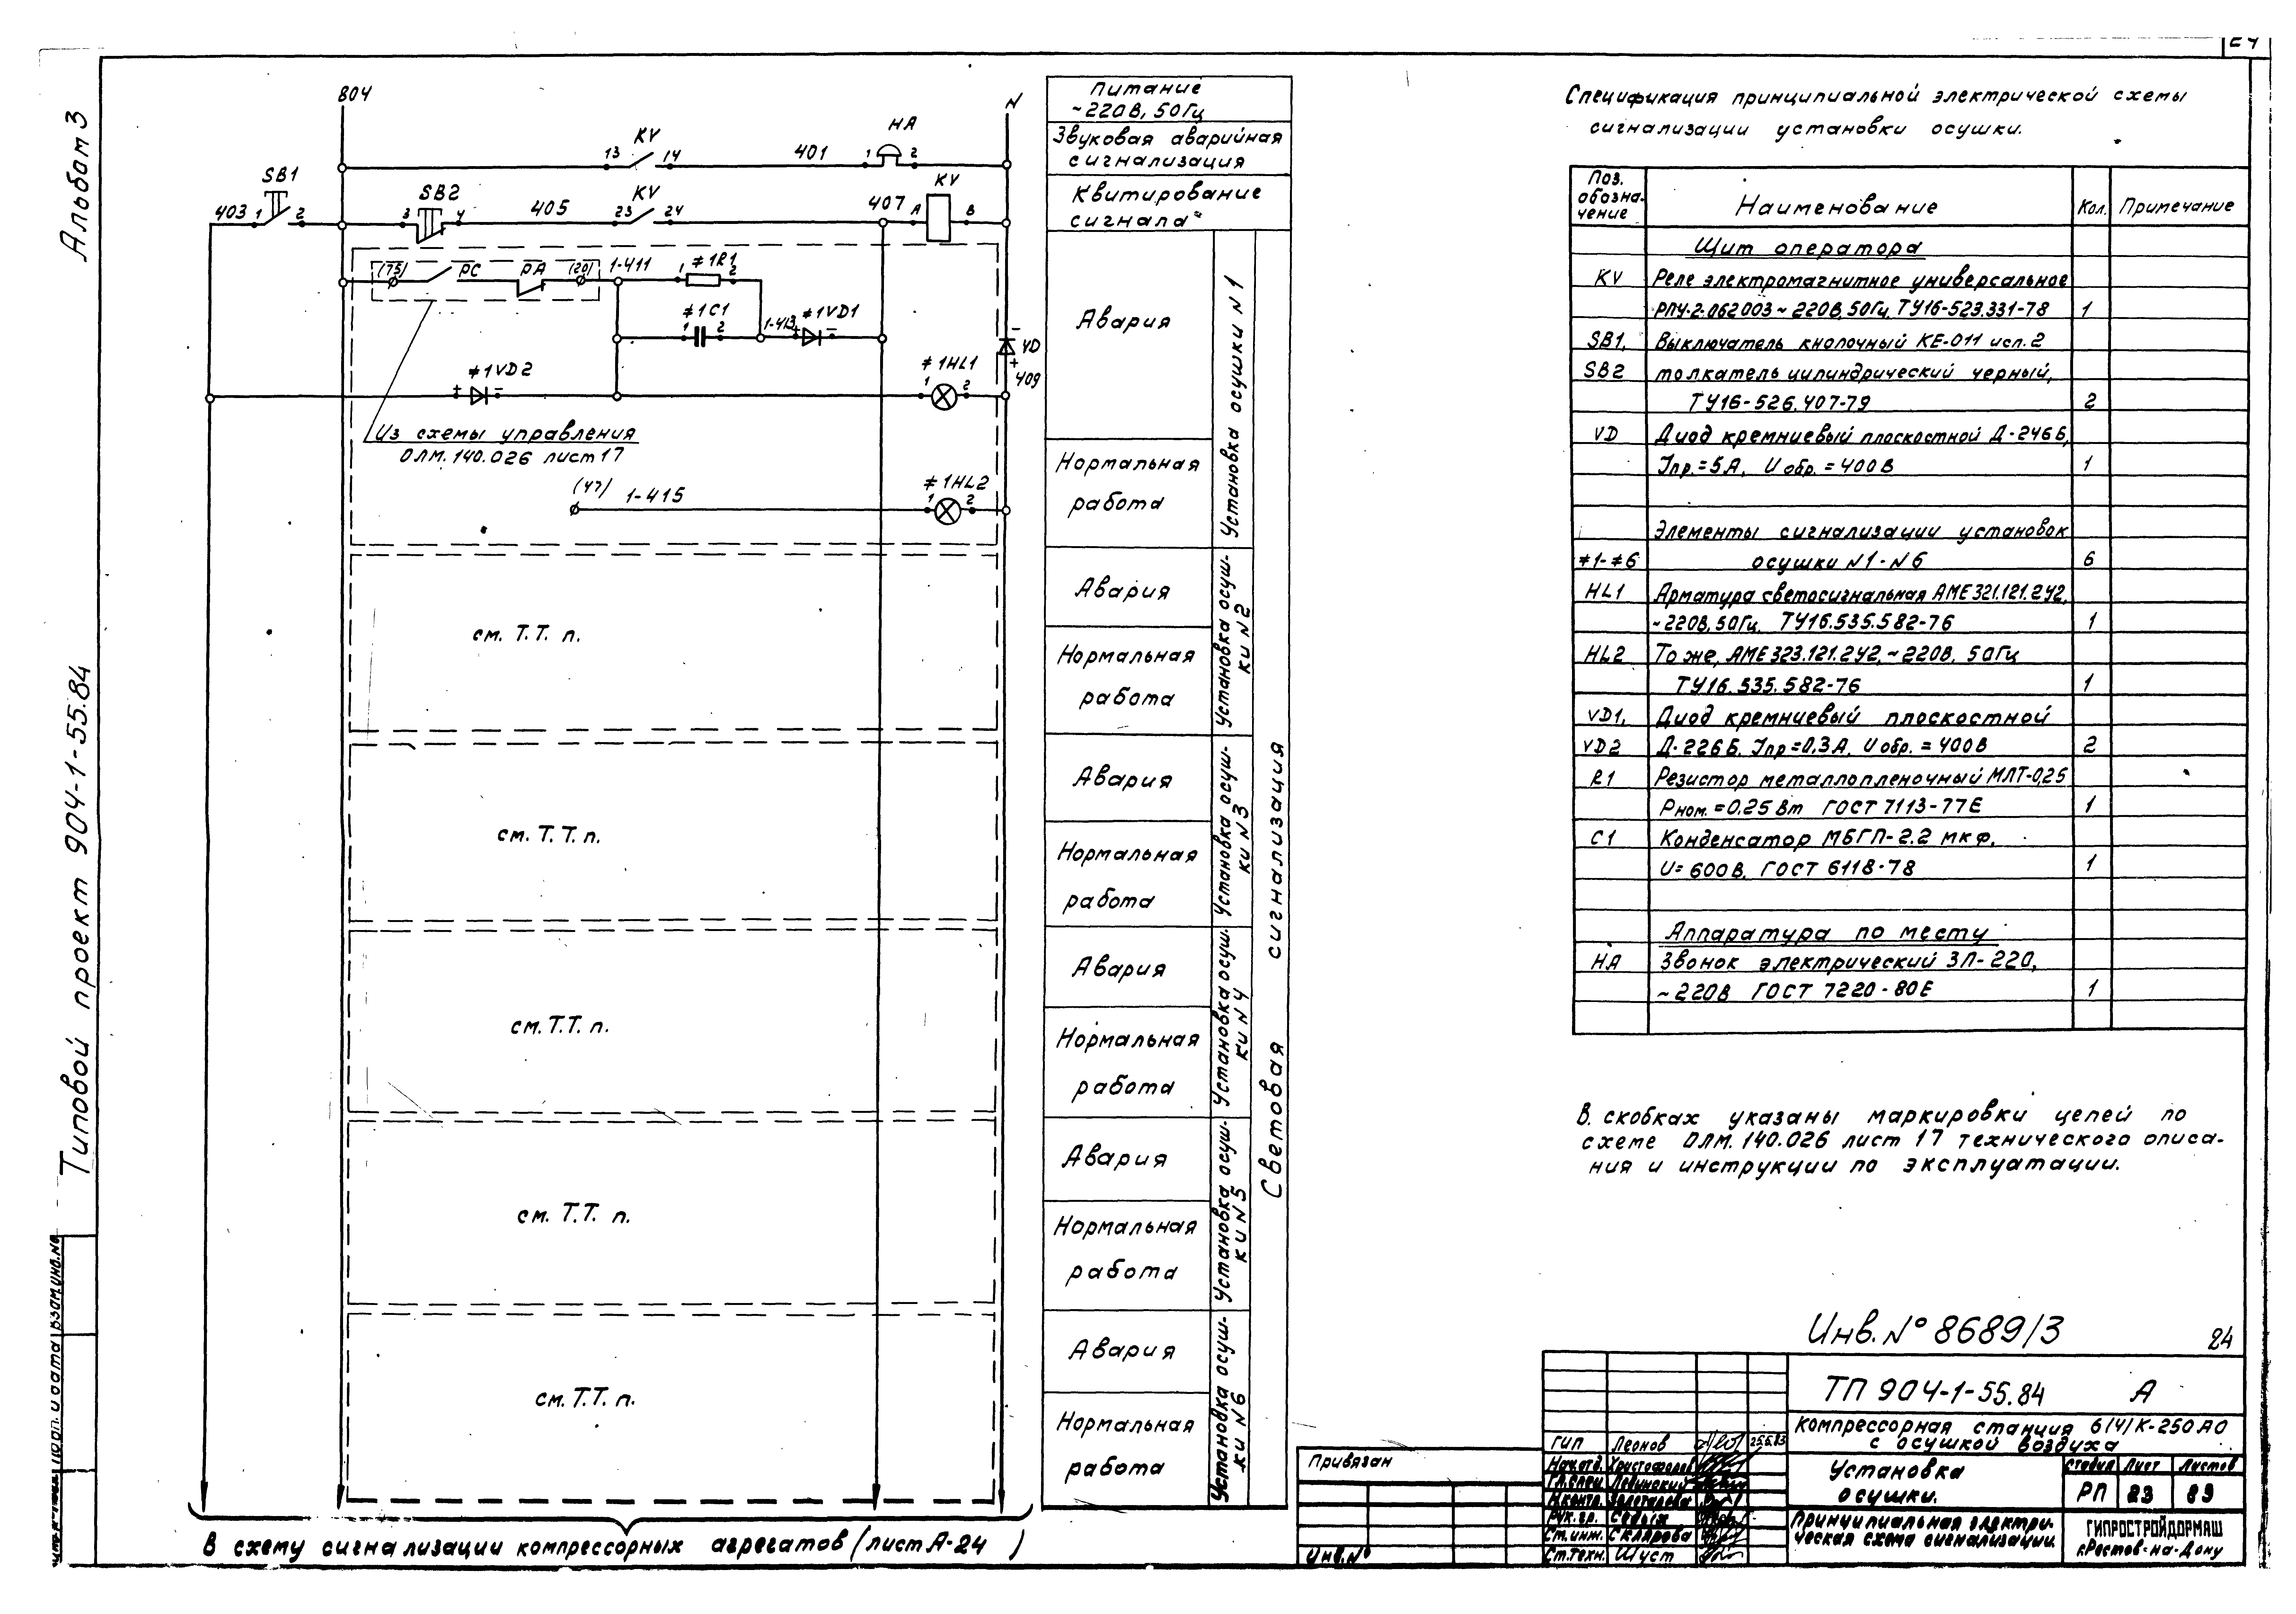 24
Альбом 3
Типовой проект 904-1-55.84
804
N
KV
HA
13
14
401
1
2
SB1
SB2
KV
407
KV
403
1
2
3
4
405
23
24
A
B
(75)
PC
PA
(20)
1-411
≠1R1
1
2
≠1C1
1
2
1-413
≠1VD1
+
−
−
VD
+
409
≠1VD2
+
−
≠1HL1
1
2
Из схемы управления
ОЛМ.140.026 лист 17
(47)
1-415
≠1HL2
1
2
см. Т.Т. п.
см. Т.Т. п.
см. Т.Т. п.
см. Т.Т. п.
см. Т.Т. п.
В схему сигнализации компрессорных агрегатов (лист А-24)
Питание
~220В, 50Гц
Звуковая аварийная
сигнализация
Квитирование
сигнала
Авария
Нормальная
работа
Установка осушки N1
Авария
Нормальная
работа
Установка осуш-
ки N2
Авария
Нормальная
работа
Установка осуш-
ки N3
Авария
Нормальная
работа
Установка осуш-
ки N4
Авария
Нормальная
работа
Установка осуш-
ки N5
Авария
Нормальная
работа
Установка осуш-
ки N6
Световая сигнализация
Спецификация принципиальной электрической схемы
сигнализации установки осушки.
Поз. обозна-чение
Наименование
Кол.
Примечание
Щит оператора
KV Реле электромагнитное универсальное
РПУ-2-062003 ~220В, 50Гц, ТУ16-523.331-78 1
SB1, Выключатель кнопочный КЕ-011 исп. 2
SB2 толкатель цилиндрический черный,
ТУ16-526.407-79 2
VD Диод кремниевый плоскостной Д-246Б,
Jпр.=5А, Uобр.=400В 1
Элементы сигнализации установок
≠1-≠6 осушки N1-N6 6
HL1 Арматура светосигнальная АМЕ321.121.2У2,
~220В, 50Гц, ТУ16.535.582-76 1
HL2 То же, АМЕ323.121.2У2, ~220В, 50Гц
ТУ16.535.582-76 1
VD1, Диод кремниевый плоскостной
VD2 Д-226Б, Jпр=0,3А, Uобр.=400В 2
R1 Резистор металлопленочный МЛТ-0,25
Рном.=0.25 Вт ГОСТ 7113-77Е 1
C1 Конденсатор МБГП-2.2 мкф,
U=600В, ГОСТ 6118-78 1
Аппаратура по месту
HA Звонок электрический ЗП-220,
~220В ГОСТ 7220-80Е 1
В скобках указаны маркировки цепей по
схеме ОЛМ.140.026 лист 17 технического описа-
ния и инструкции по эксплуатации.
Инв. N° 8689/3
24
ТП 904-1-55.84 А
Компрессорная станция 6(4)К-250АО
с осушкой воздуха
ГИП Леонов 25.5.83
Нач.отд. Христофоров
Гл.спец. Лединский
Н.контр.
Рук.гр. Седых
Ст.инж. Склярова
Ст.техн. Шуст
Установка
осушки.
Стадия Лист Листов
РП 23 89
Принципиальная электри-
ческая схема сигнализации.
ГИПРОСТРОЙДОРМАШ
г.Ростов-на-Дону
Привязан
Инв.N°
Подп. и дата
Взам.инв.N°